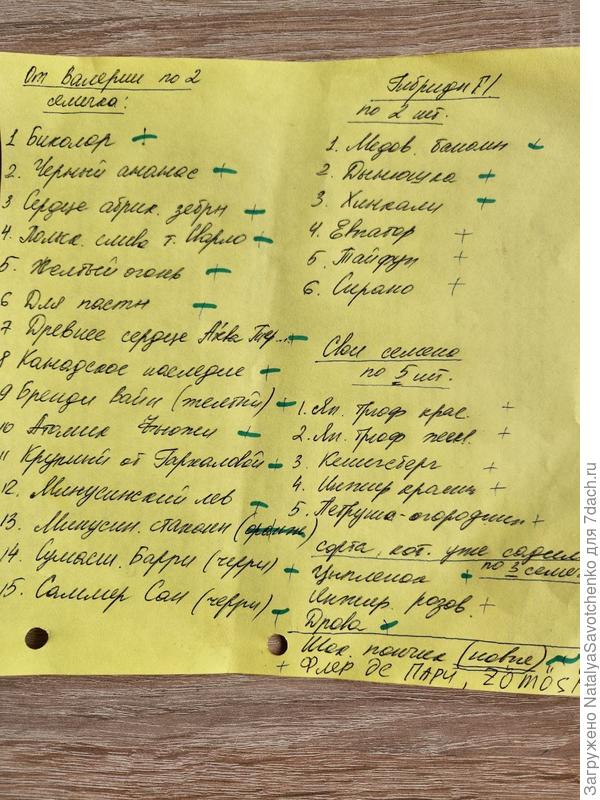 От Валерии по 2
семечка:
1 Биколор +
2. Черный ананас +
3 Сердце абрик. зебры +
4. Полк. слива т. Шварло +
5. Желтый огонь +
6 Для пасты +
7 Древнее сердце Аква Тер...
8 Канадское наследие +
9 Бренди Вайн (желтый) +
10 Атомик Фьюжн +
11 Крупный от Пархаловой
12. Минусинский лев
13. Минусин. стакан (оранж)
14. Сумасш. Барри (черри) +
15. Саммер Сан (черри)
Гибриды F1
по 2 шт.
1. Медов. банани +
2. Дынюшка +
3. Хинкали +
4. Евпатор +
5. Тайфун +
6. Сирано +
Свои семена
по 5 шт.
1. Яп. трюф крас. +
2. Яп. трюф жел. +
3. Кенигсберг +
4. Инжир красн +
5. Петруша-огородник +
сорта, кот. уже садила
по 3 семе
Цыпленок +
Инжир. розов. +
Дрова +
Шок. пончик (новые)
+ Флер де Пари, ZÖMÖS
Загружено NatalyaSavotchenko для 7dach.ru